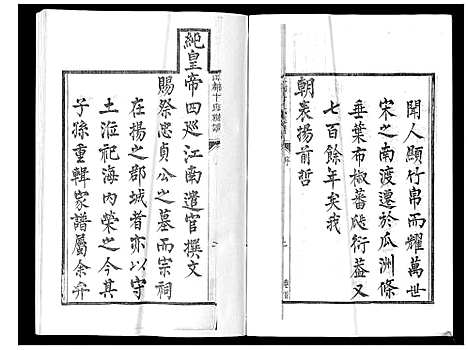 聞人頤竹帛而耀萬世
宋之南渡遷於瓜洲條
垂葉布椒蕃瓞衍益又
七百餘年矣我
朝衷揚前哲
純皇帝四巡江南遣官撰文
賜祭忠貞公之墓而宗祠
在揚之郡城者亦以守
土涖祀海内榮之今其
子孫重輯家譜屬余弁